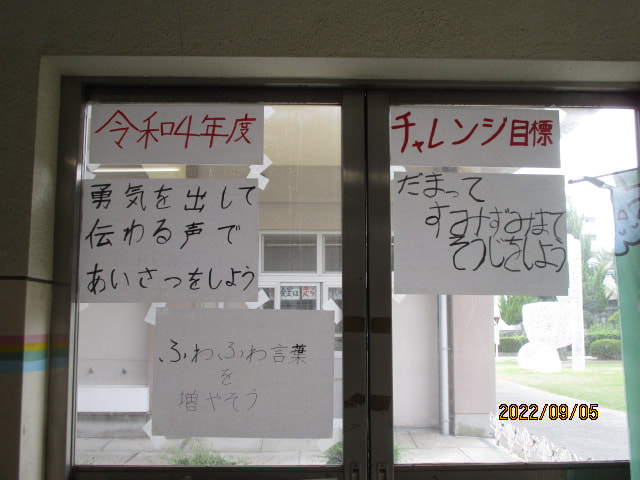 令和4年度
チャレンジ目標
勇気を出して
伝わる声で
あいさつをしよう
だまって
すみずみまで
そうじをしよう
ふわふわ言葉
を
増やそう
2022/09/05